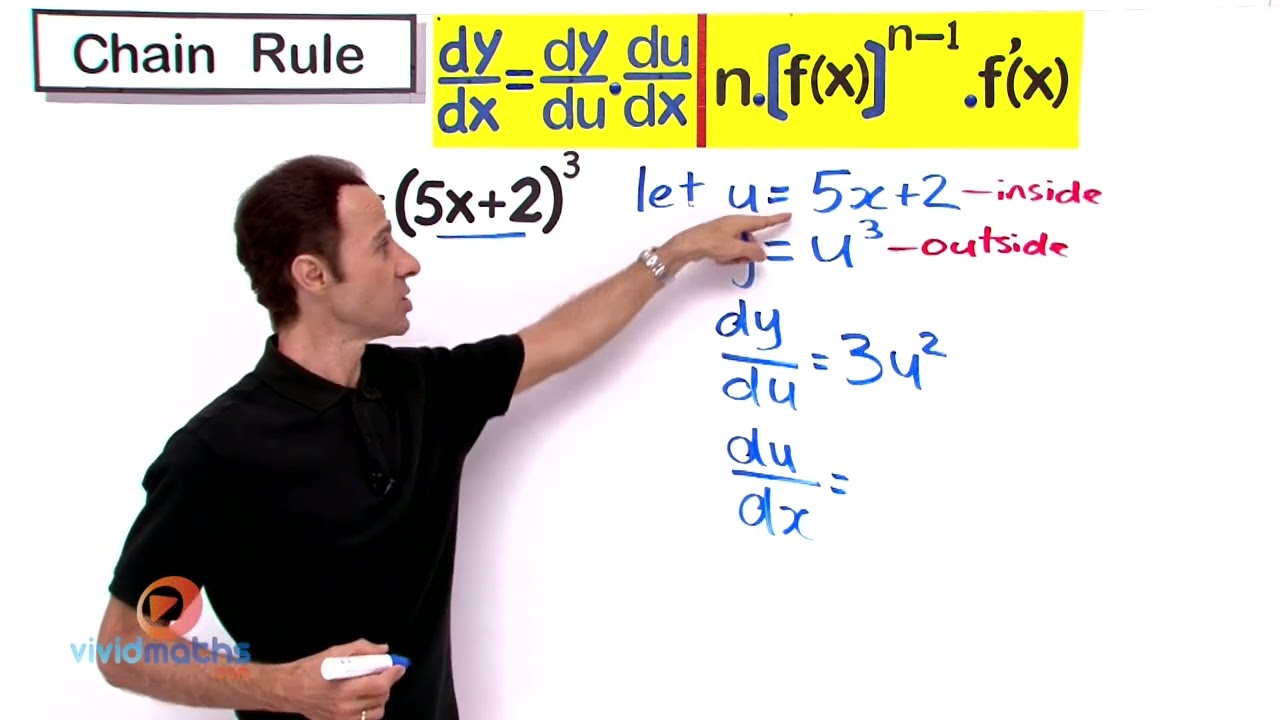 Chain Rule
dy/dx = dy/du . du/dx
n.[f(x)]^{n-1} .f'(x)
=(5x+2)^3
let u = 5x+2 - inside
y = u^3 - outside
dy/du = 3u^2
du/dx =
vividmaths
.com